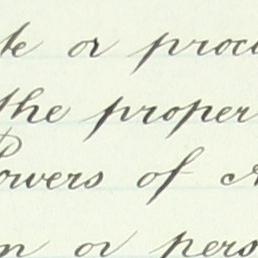 te or procu
the proper
Powers of A
on or perso